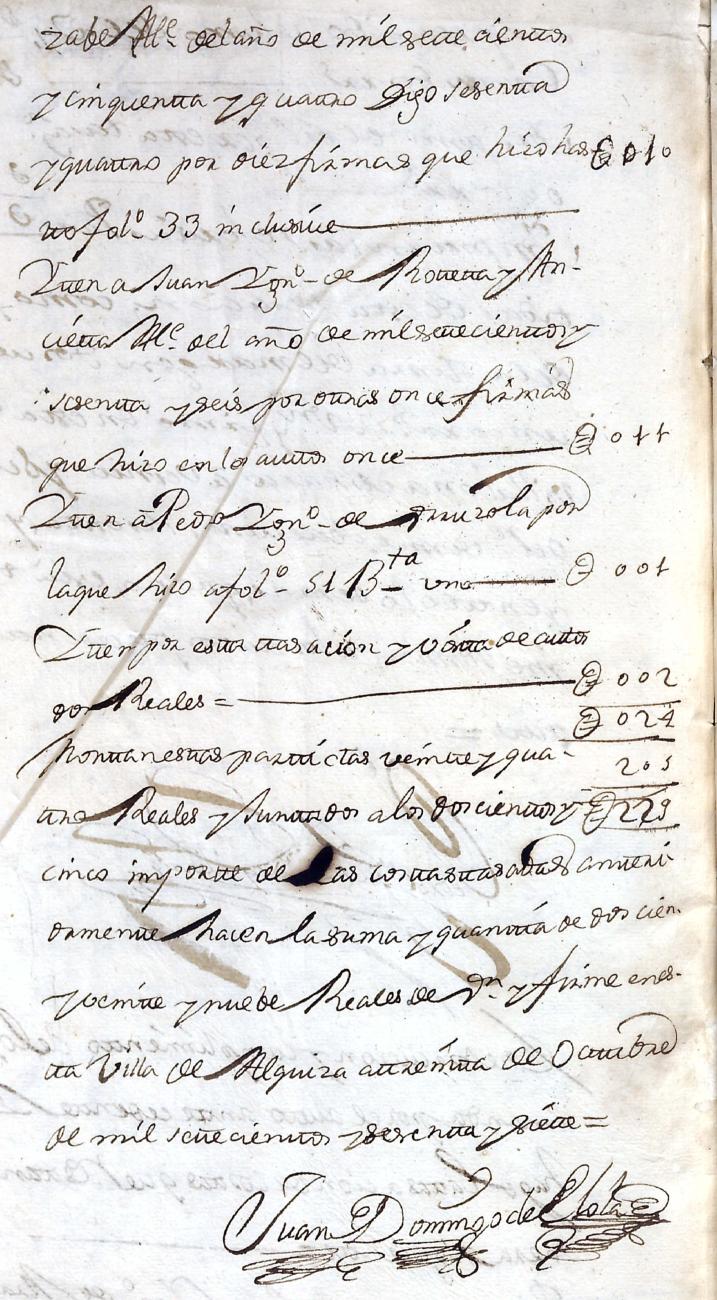 zabe Alc.e del año de mil sette cientos
y cinquentta y quattro digo sesentta
y quattro por diez firmas que hizo has- @ 010
tto fol.o 33 inclusive
Ytten a Juan Ygn.o de Rotetta y An-
cietta Alc.e del año de mil settecientos y
sesentta y seis por ottras once firmas
que hizo con los auttos once @ 011
Ytten a Pedro Ygn.o de por
la que hizo a fol.o 51 B.ta una @ 001
Ytten por estta ttasación y vistta de auttos
dos Reales = @ 002
@ 024
Monttan esttas parttidas veintte y qua-
205
ttro Reales y Junttados a los doscienttos y @ 229
cinco importte de las costtas ttasadas antteri-
ormentte hacen la suma y quanttía de doscien.
y veintte y nuebe Reales de v.n y firme en es-
tta Villa de Alquiza a ttreintta de Octtubre
de mil settecienttos y sesentta y siette =
Juan Domingo de